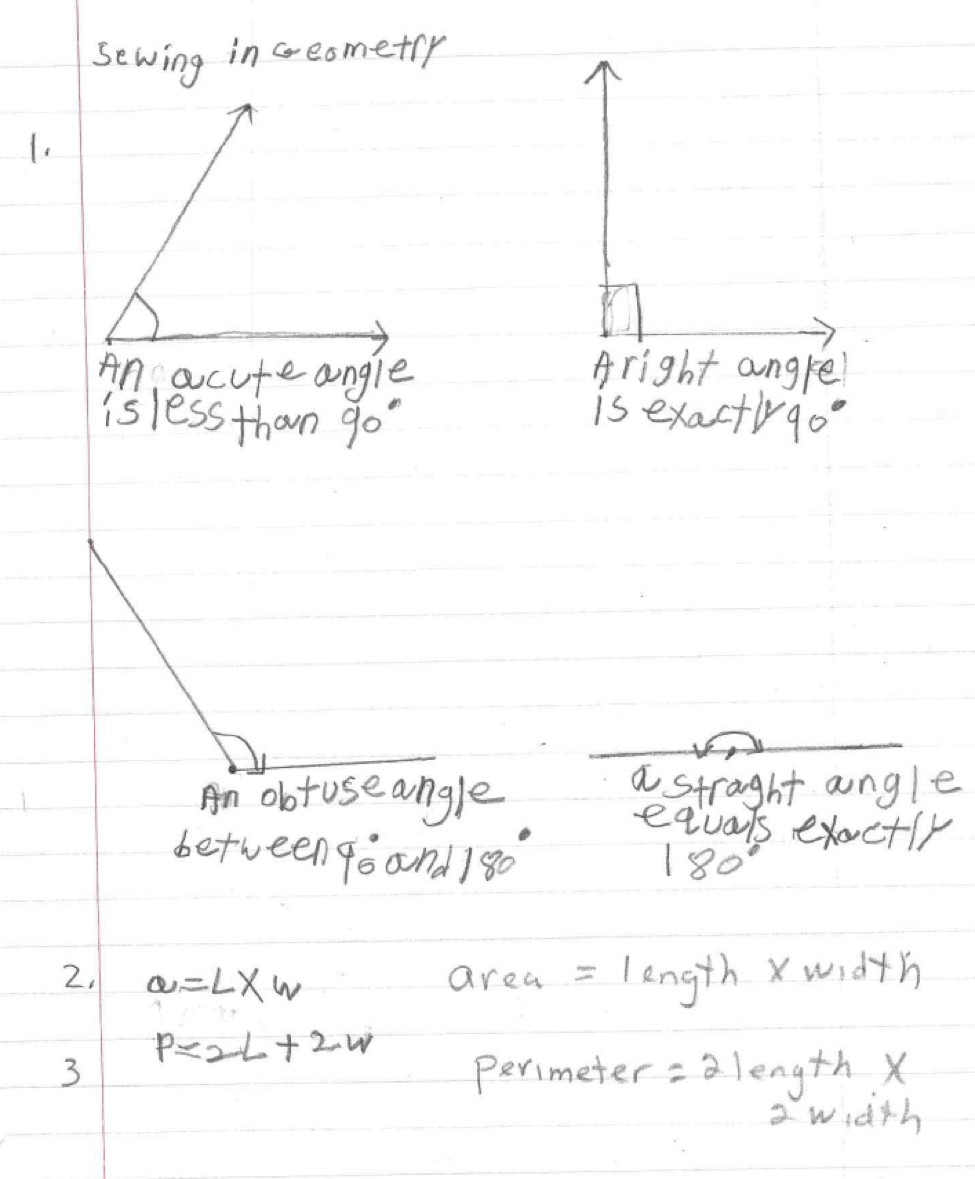 Sewing in Geometry
1.
An acute angle
is less than 90°
A right angle
is exactly 90°
An obtuse angle
between 90° and 180°
a straght angle
equals exactly
180°
2. a=LXW area = length x width
P=2L+2W
3 Perimeter = 2 length X
2 width